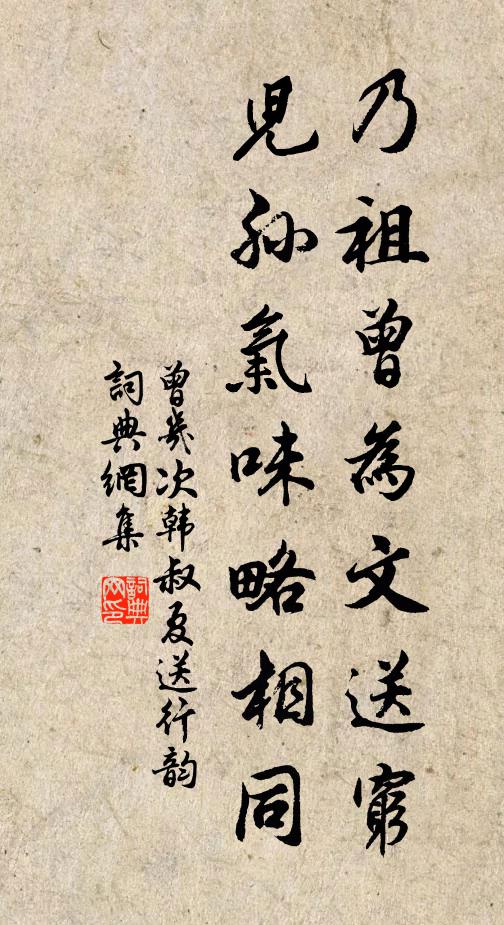 乃祖曾為文送窮
兒孙氣味略相同
曾幾次韩叔夏送行韵
詞典網集
詞典
文印